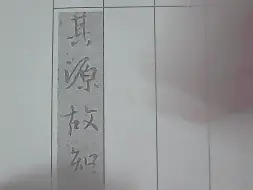 其源故知